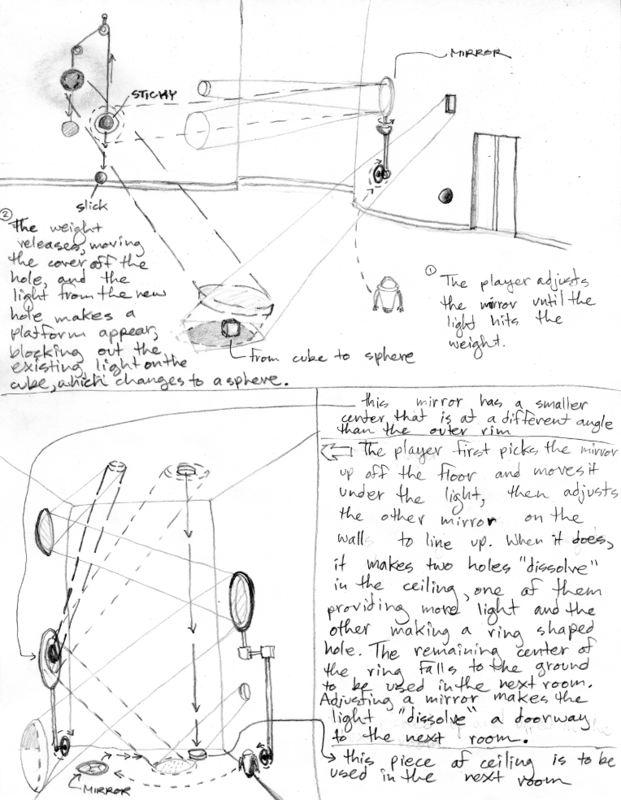 MIRROR
STICKY
slick
②
The weight
releases, moving
the cover off the
hole, and the
light from the new
hole makes a
platform appear,
blocking out the
existing light on the
cube, which changes to a sphere.
from cube to sphere
①
The player adjusts
the mirror until the
light hits the
weight.
this mirror has a smaller
center that is at a different angle
than the outer rim
The player first picks the mirror
up off the floor and moves it
under the light, then adjusts
the other mirror on the
walls to line up. When it does,
it makes two holes "dissolve"
in the ceiling, one of them
providing more light and the
other making a ring shaped
hole. The remaining center of
the ring falls to the ground
to be used in the next room.
Adjusting a mirror makes the
light "dissolve" a doorway
to the next room.
this piece of ceiling is to be
used in the next room
MIRROR